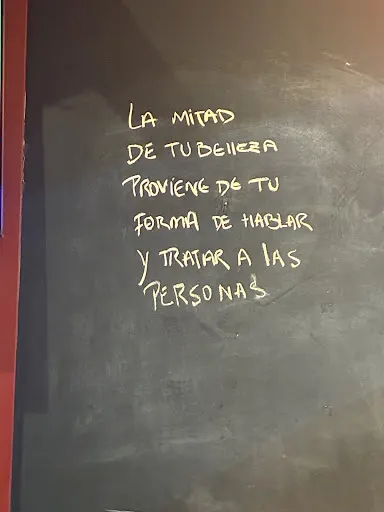 LA MITAD
DE TU BELLEZA
PROVIENE DE TU
FORMA DE HABLAR
Y TRATAR A LAS
PERSONAS